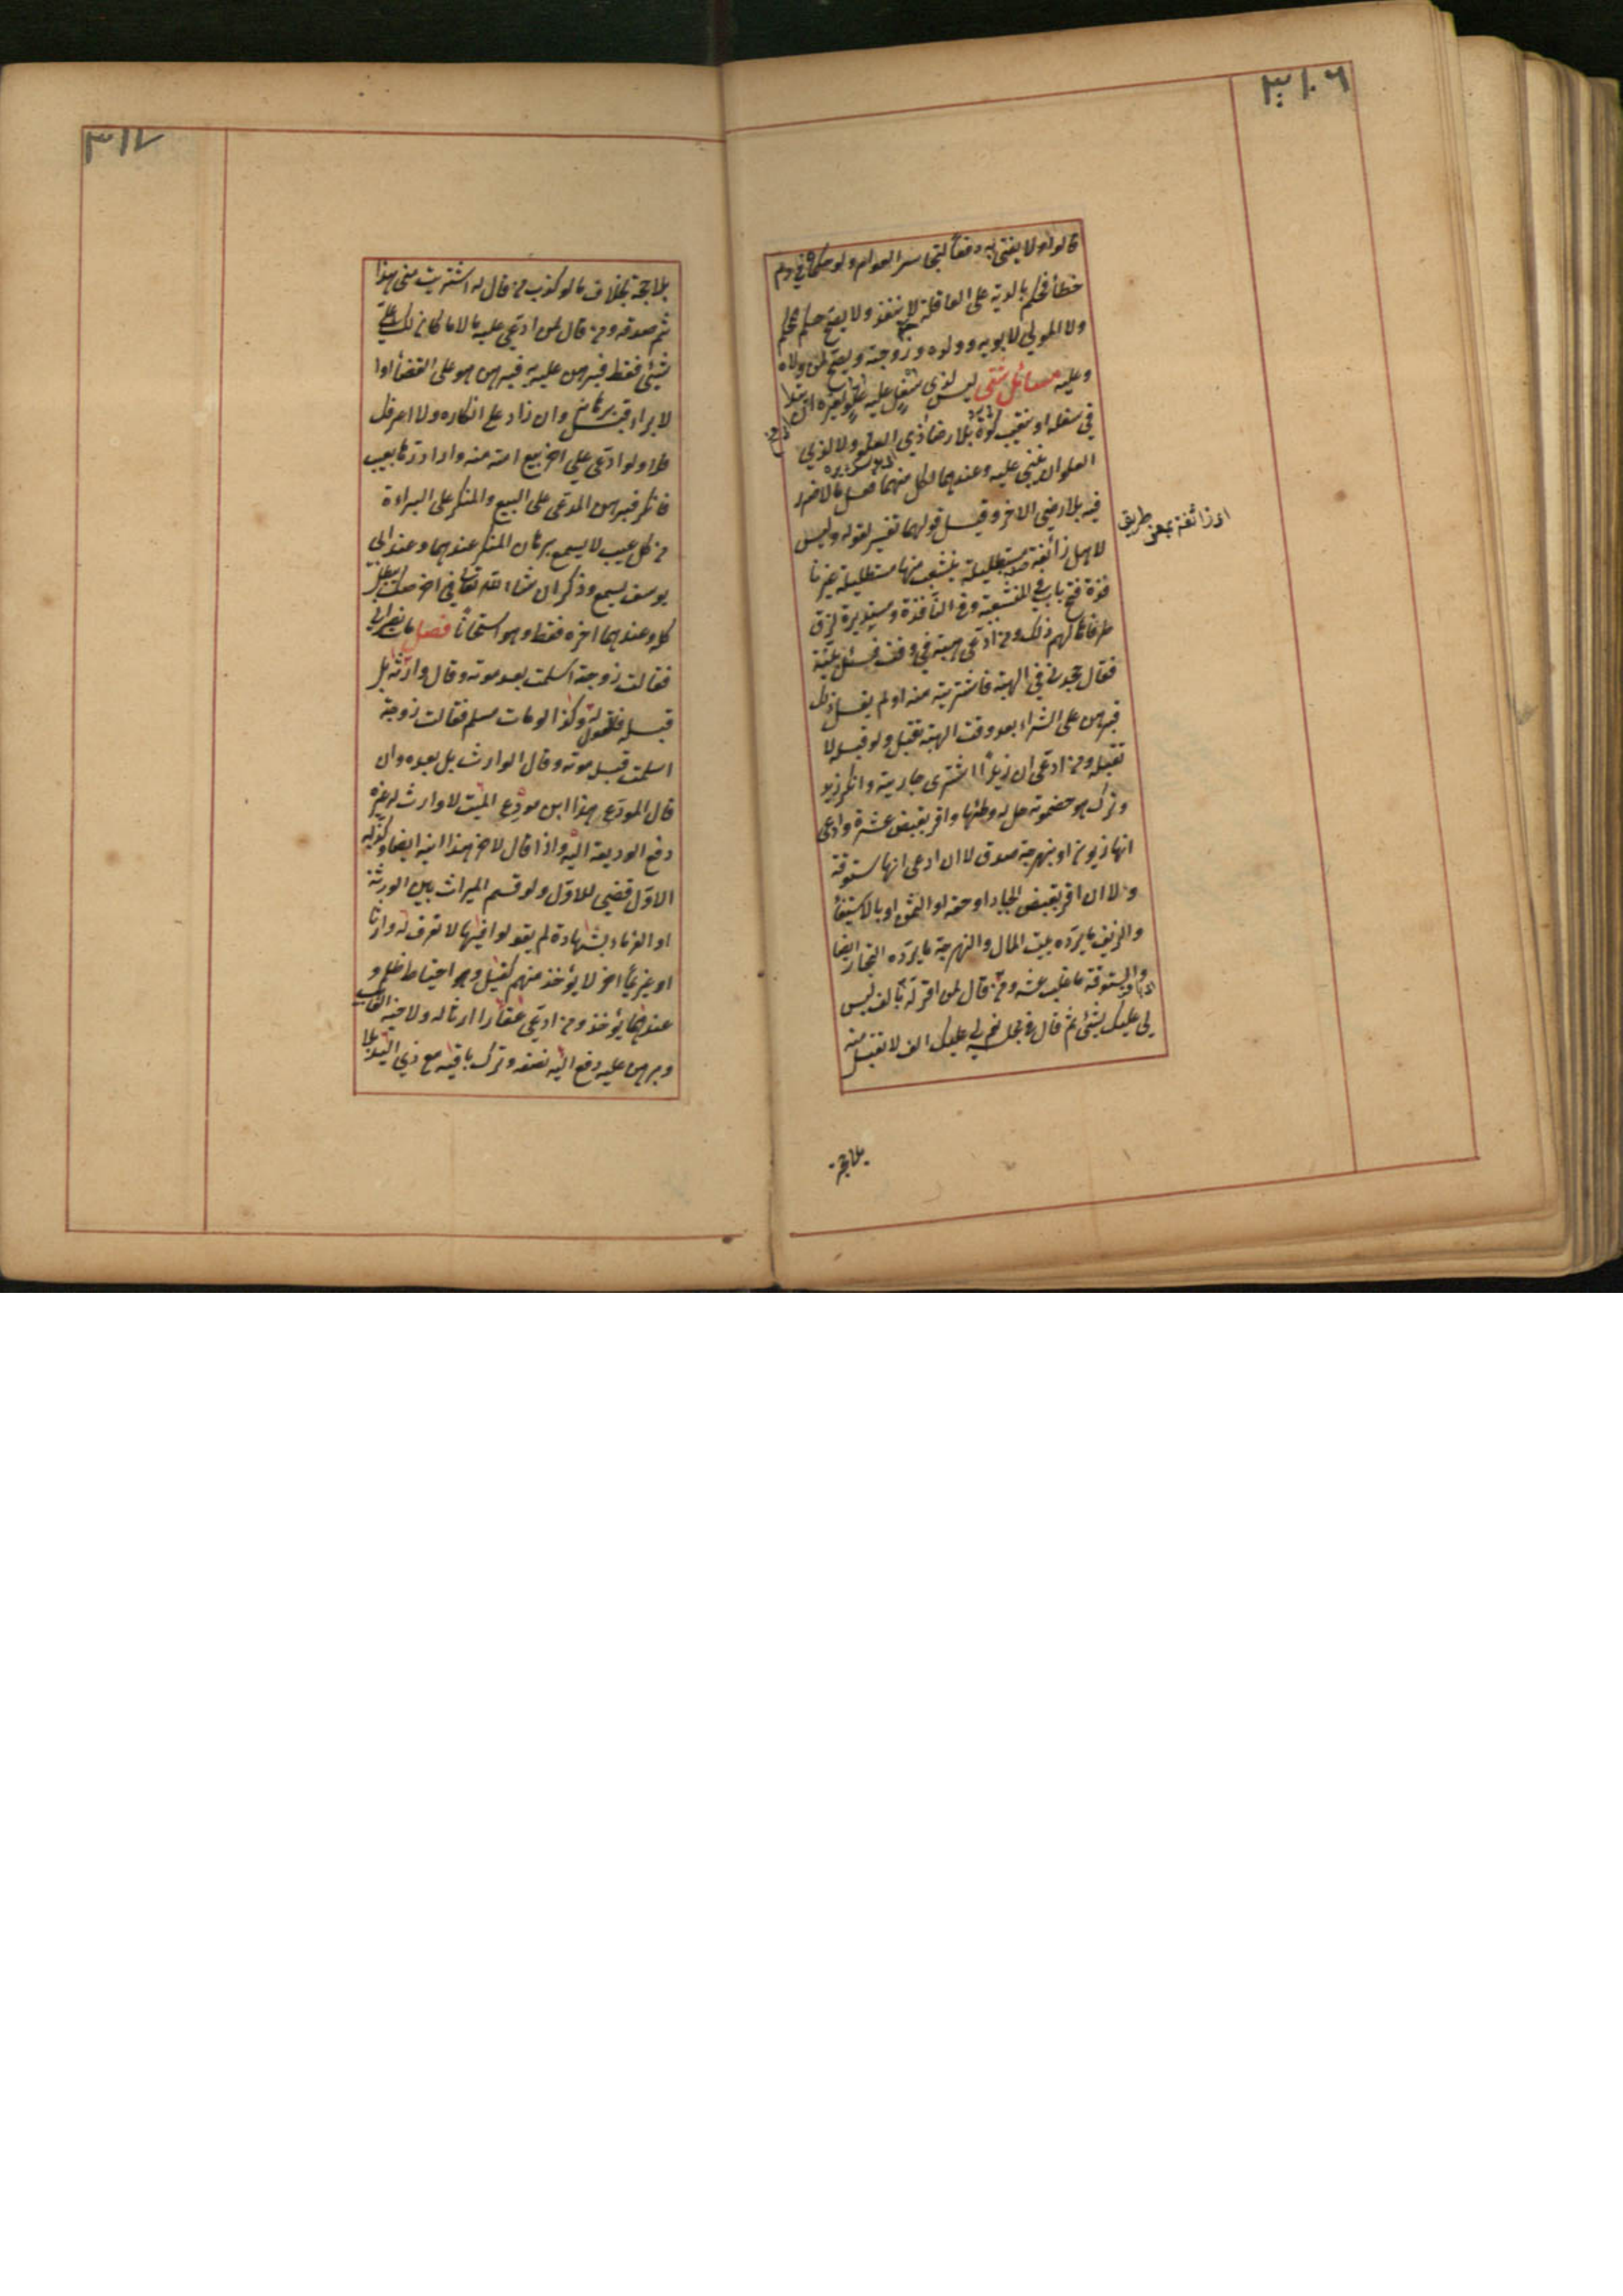 ٣١٠٦
قالوا ولا يفتى به دفعا لتجاسر العوام ولو حكماه في دم
خطأ فحكم بالدية على العاقلة لا ينفذ ولا يصح حكم المحكم
ولا المولى لابويه وولده وزوجته ويصح لمن ولاه
وعليه مسائل شتى ليس لذي سفل عليه علو لغيره ان يتد
في سفله او ينقب كوة بلا رضا ذي العلو ولا لذي
العلو ان يبني عليه وعندهما لكل منهما فعل ما لا ضرر
فيه بلا رضى الاخر وقيل قولهما تفسير لقوله وليس
لاهل زائغة مستطيلة ينشعب منها مستطيلة غير نا
فذة فتح باب في المنشعبة وفي النافذة ومستديرة لزق
طرفاها لهم ذلك ومن ادعى هبة في وقت فسئل بينة
فقال جحدني الهبة فاشتريته منه او لم يقل ذلك
فبرهن على الشراء بعد وقت الهبة تقبل ولو قبله لا
تقبل ومن ادعى ان زيدا اشترى جاريته وانكر زيد
وترك هو خصومته حل له وطئها واقر بقبض عشرة وادعى
انها زيوف او بنهرجة صدق لا ان ادعى انها ستوقة
ولا ان اقر بقبض الجياد او حقه او الثمن او بالاستيفأ
والزيف ما يرده بيت المال والنهرجة ما يرده التجار ايضا
والستوقة ما غلب غشه ومن قال لمن اقر له بالف ليس
لي عليك شئ ثم قال في مجلسه نعم لي عليك الف لا تقبل منه
اى زائغة بمعنى طريق
بلا حجة
٣١٧
بلا حجة بخلاف ما لو كذب من قال له اشتريت مني هذا
ثم صدقه ومن قال لمن ادعى عليه مالا ما كان لك علي
شئ فقط فبرهن عليه به فبرهن هو على القضأ او ا
لابراء قبل برهانه وان زاد على انكاره ولا اعرفك
فلا ولو ادعى على اخر بيع امته منه واراد ردها بعيب
فانكر فبرهن المدعي على البيع والمنكر على البراءة
من كل عيب لا يسمع برهان المنكر عندهما وعند ابي
يوسف يسمع وذكر ان شاء الله تعالى في اخر صك يبطل
كله وعندهما اخره فقط وهو استحسانا فصل مات نصراني
فقالت زوجته اسلمت بعد موته وقال وارثه بل
قبله فالقول له وكذا لو مات مسلم فقالت زوجته
اسلمت قبل موته وقال الوارث بل بعده وان
قال المودع هذا ابن مودعي الميت لا وارث له غيره
دفع الوديعة اليه واذا قال لاخر هذا ابنه ايضا وكذبه
الاول قضي للاول ولو قسم الميراث بين الورثة
او الغرماء بشهادة لم يقولوا فيها لا نعرف له وارثا
او غريما اخر لا يؤخذ منهم كفيل وهو احتياط ظلم و
عندهما يؤخذ ومن ادعى عقارا ارثا له ولاخيه الغائب
وبرهن عليه دفع اليه نصفه وترك باقيه مع ذي اليد بلا